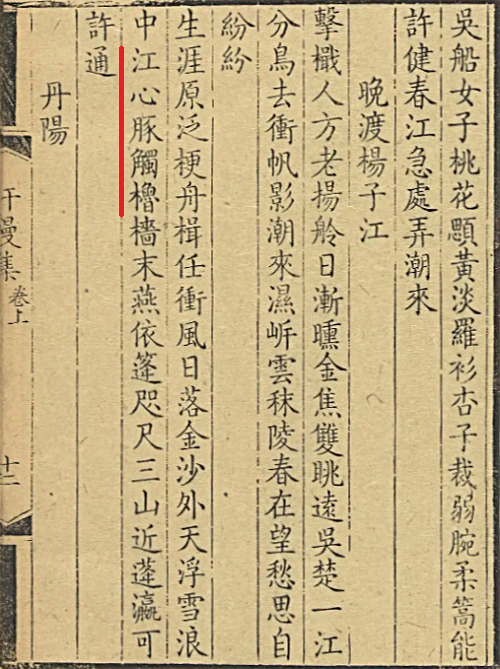 吳船女子桃花顋黃淡羅衫杏子裁弱腕柔篙能
許健春江急處弄潮來
晚渡楊子江
擊檝人方老揚舲日漸曛金焦雙眺遠吳楚一江
分鳥去衝帆影潮來濕岍雲秣陵春在望愁思自
紛紛
生涯原泛梗舟楫任衝風日落金沙外天浮雪浪
中江心豚觸櫓檣末燕依篷咫尺三山近蓬瀛可
許通
丹陽
汗漫集
卷上
十二